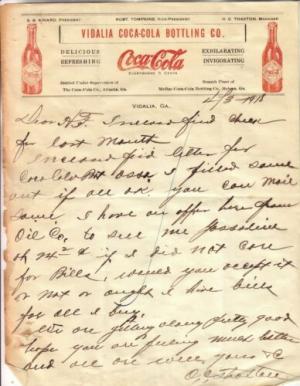 S. B. KINARD, PRESIDENT ROBT. TOMPKINS, VICE-PRESIDENT O. C. THAXTON, MANAGER
VIDALIA COCA-COLA BOTTLING CO.
DELICIOUS
REFRESHING
Coca-Cola
EVERYWHERE 5 CENTS
EXHILARATING
INVIGORATING
Bottled Under Supervision of
The Coca-Cola Co., Atlanta, Ga.
Branch Plant of
Coca-Cola Bottling Co.
VIDALIA, GA.
1918
Inclosed find check
for last Month
Inclosed find letter for
Coca Cola Bot I filled same
out if all ok you can mail
same. I have an offer here from
Oil Co. to sell me Gasoline
at if I did not care
for Bills, would you accept it
or not or ought I have bills
for all I buy.
We are getting along pretty good
hope you are feeling much better
and all are well, yours &C